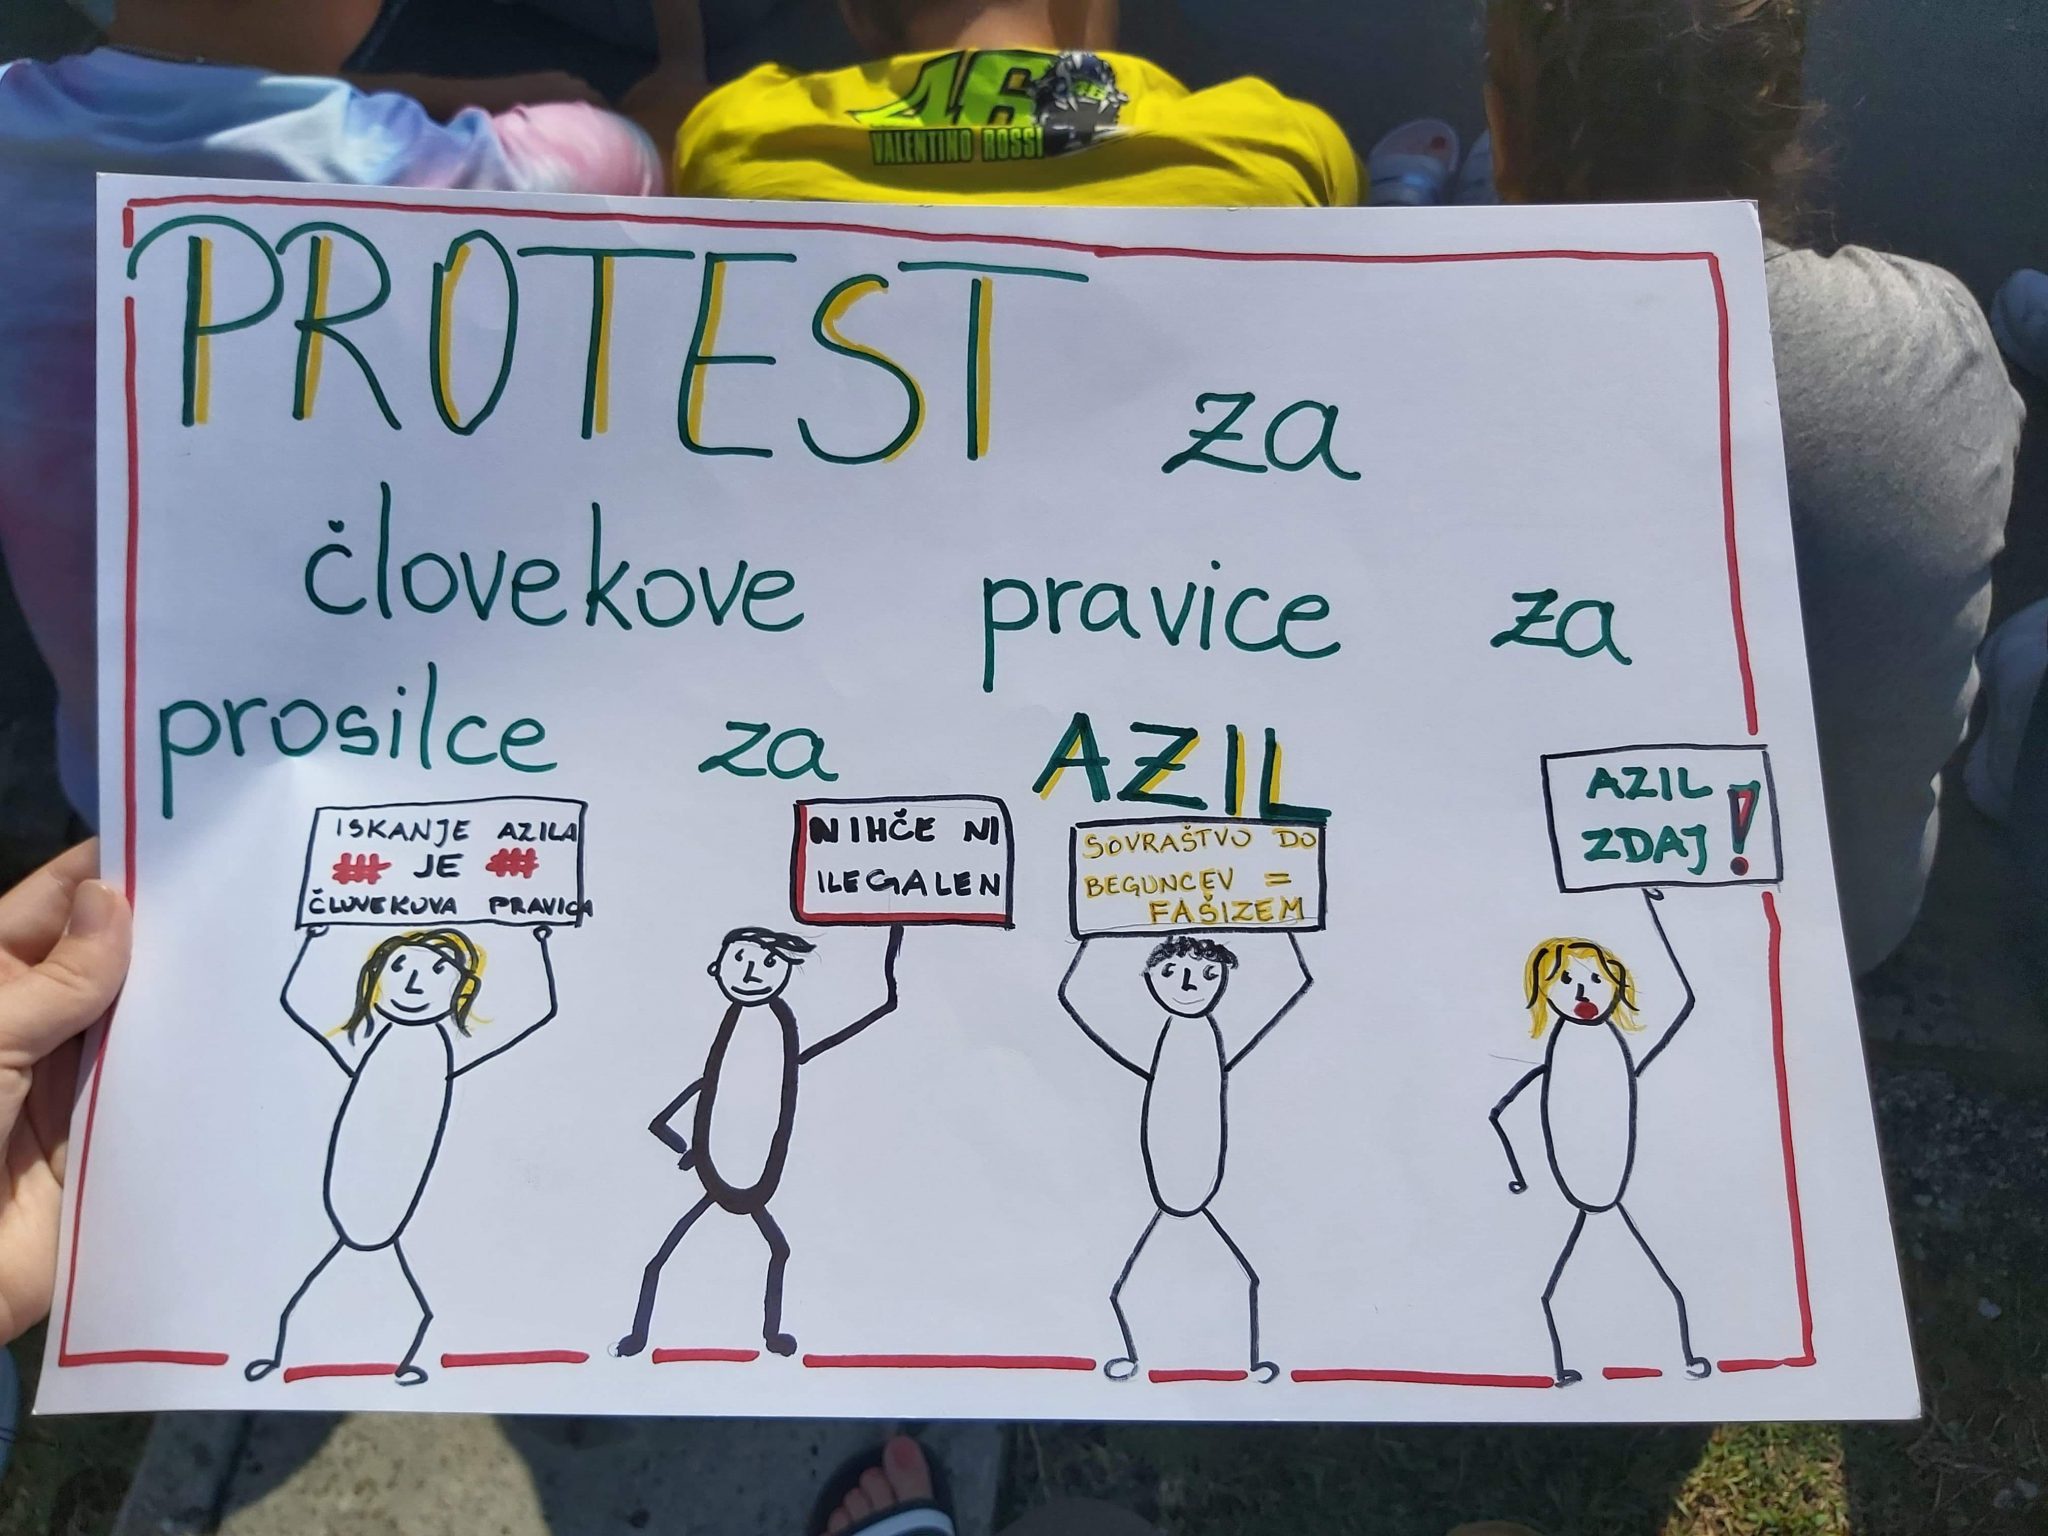 46
VALENTINO ROSSI
PROTEST za
človekove pravice za
prosilce za AZIL
ISKANJE AZILA
JE
ČLOVEKOVA PRAVICA
NIHČE NI
ILEGALEN
SOVRAŠTVO DO
BEGUNCEV =
FAŠIZEM
AZIL
ZDAJ!